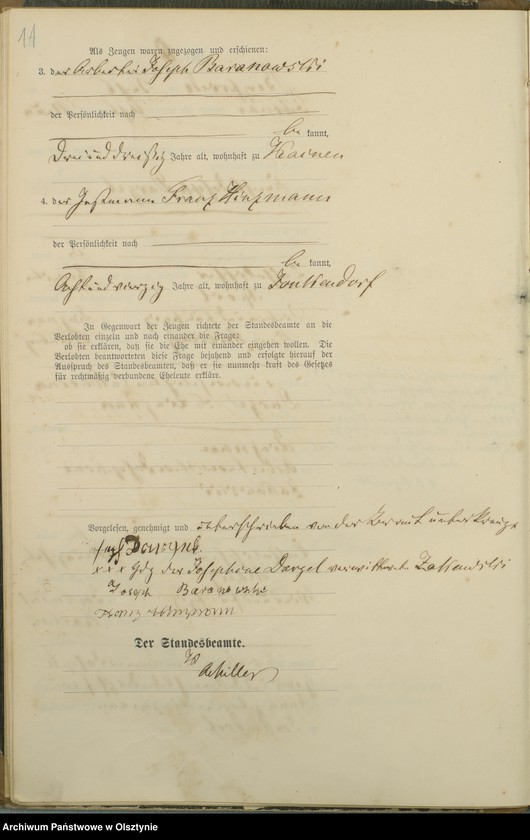 14
Als Zeugen waren zugezogen und erschienen:
3. der Arbeiter Joseph Baranowski
der Persönlichkeit nach
be kannt,
Dreiunddreißig Jahre alt, wohnhaft zu Kainen
4. der Instmann Franz Hinzmann
der Persönlichkeit nach
be kannt,
Achtundvierzig Jahre alt, wohnhaft zu
In Gegenwart der Zeugen richtete der Standesbeamte an die
Verlobten einzeln und nach einander die Frage:
ob sie erklären, daß sie die Ehe mit einander eingehen wollen. Die
Verlobten beantworteten diese Frage bejahend und erfolgte hierauf der
Ausspruch des Standesbeamten, daß er sie nunmehr kraft des Gesetzes
für rechtmäßig verbundene Eheleute erkläre.
Vorgelesen, genehmigt und von der
x x x Hdz der Josephine Dargel verwittwete
Joseph Baranowski
Franz Hinzmann
Der Standesbeamte.
Achiller
Archiwum Państwowe w Olsztynie